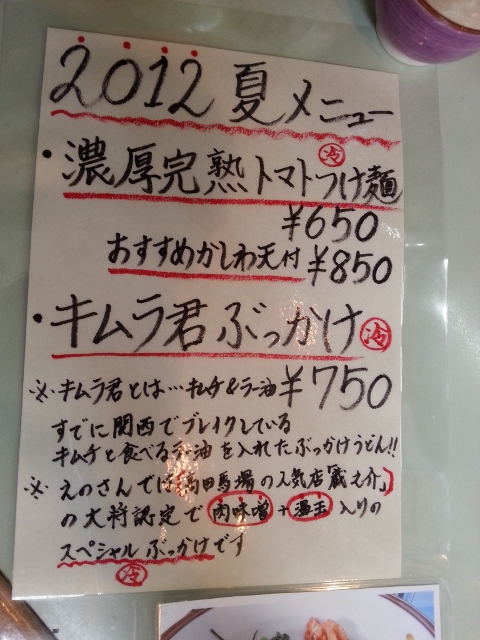 2012 夏メニュー
・濃厚完熟トマトつけ麺 冷
¥650
おすすめかしわ天付 ¥850
・キムラ君ぶっかけ 冷
※キムラ君とは…キムチ&ラー油 ¥750
すでに関西でブレイクしている
キムチと食べるラー油を入れたぶっかけうどん!!
※えのさんでは「高田馬場の人気店蔵之介」
の大将認定で 肉味噌 + 温玉 入りの
スペシャルぶっかけです
冷